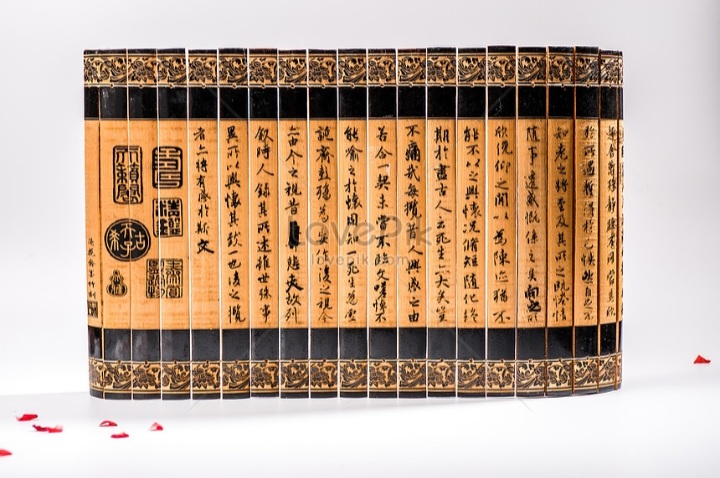 趣舍萬殊靜躁不同當其欣
於所遇蹔得於己怏然自足不
知老之將至及其所之既惓情
隨事遷感慨係之矣向之所
欣俛仰之間以為陳迹猶不
能不以之興懷況脩短隨化終
期於盡古人云死生亦大矣豈
不痛哉每攬昔人興感之由
若合一契未嘗不臨文嗟悼不
能喻之於懷固知一死生為虛
誕齊彭殤為妄作後之視今
亦由今之視昔悲夫故列
敘時人錄其所述雖世殊事
異所以興懷其致一也後之攬
者亦將有感於斯文
LovePik
lovepik.com